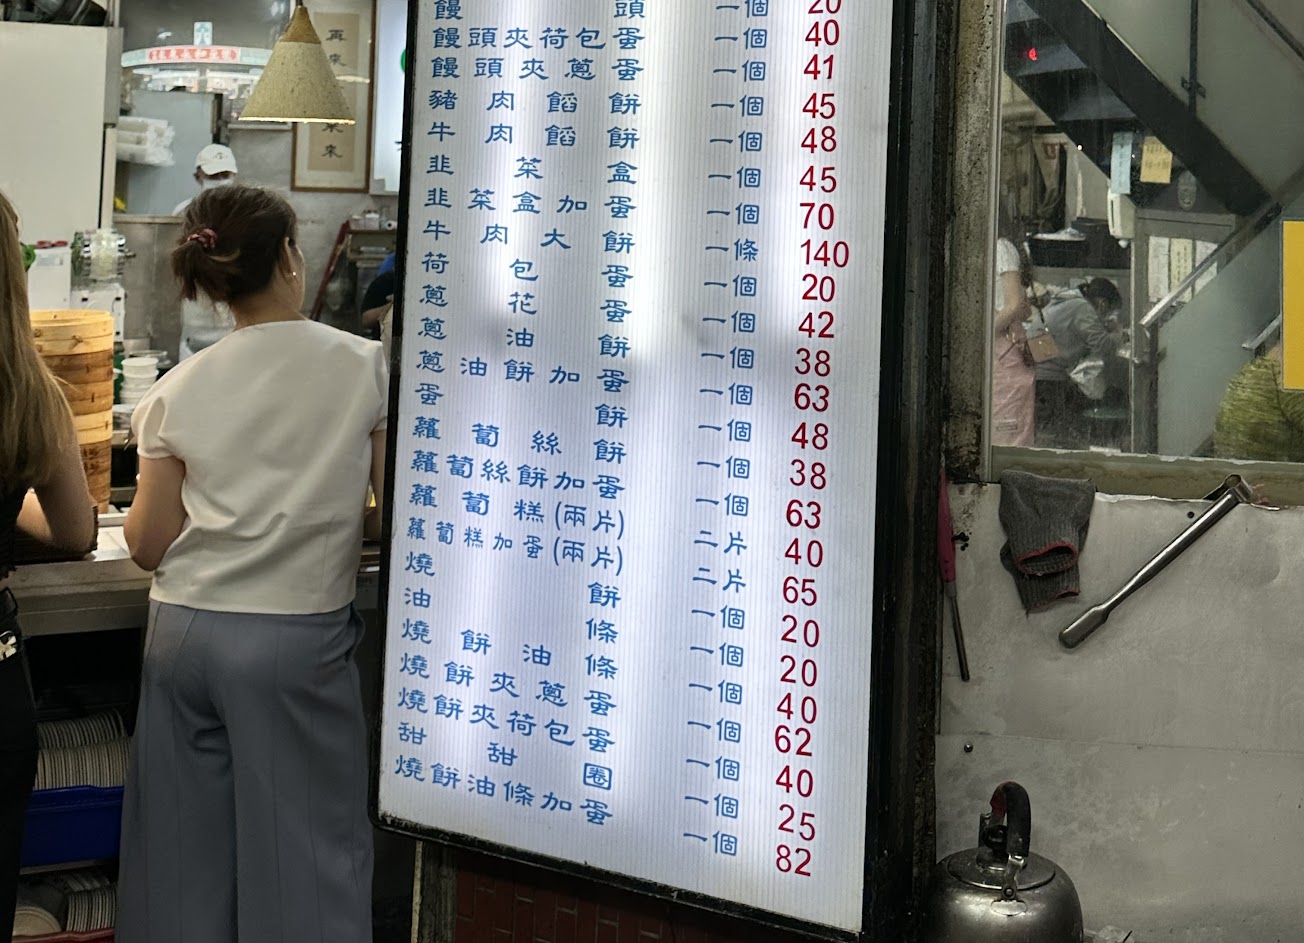 饅頭 一個 20
饅頭夾荷包蛋 一個 40
饅頭夾蔥蛋 一個 41
豬肉餡餅 一個 45
牛肉餡餅 一個 48
韭菜盒 一個 45
韭菜盒加蛋 一個 70
牛肉大餅 一條 140
荷包蛋 一個 20
蔥花蛋 一個 42
蔥油餅 一個 38
蔥油餅加蛋 一個 63
蛋餅 一個 48
蘿蔔絲餅 一個 38
蘿蔔絲餅加蛋 一個 63
蘿蔔糕(兩片) 二片 40
蘿蔔糕加蛋(兩片) 二片 65
燒餅 一個 20
油條 一個 20
燒餅油條 一個 40
燒餅夾蔥蛋 一個 62
燒餅夾荷包蛋 一個 40
甜甜圈 一個 25
燒餅油條加蛋 一個 82
再來
來